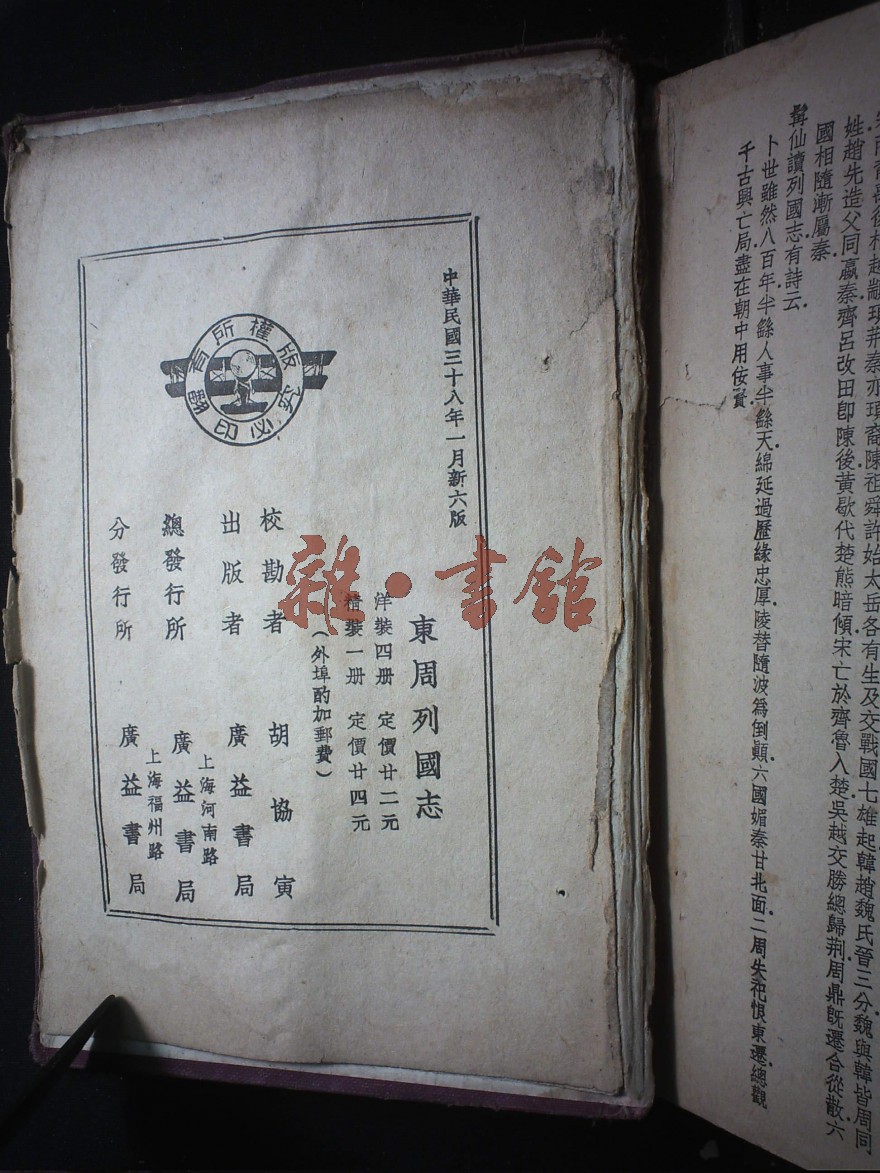 姓趙先造父同嬴秦齊呂改田卽陳後黃歇代楚熊暗傾宋亡於齊魯入楚吳越交勝總歸荆周鼎旣遷合從散六
國相隨漸屬秦
髯仙讀列國志有詩云
卜世雖然八百年半繇人事半繇天綿延過歷緣忠厚陵替隨波爲倒顚六國媚秦甘北面二周失祀恨東遷總觀
千古興亡局盡在朝中用佞賢
中華民國三十八年一月新六版
東周列國志
洋裝四册 定價廿二元
精裝一册 定價廿四元
(外埠酌加郵費)
校勘者 胡協寅
出版者 廣益書局
上海河南路
總發行所 廣益書局
上海福州路
分發行所 廣益書局
版權所有
翻印必究
雜·書館